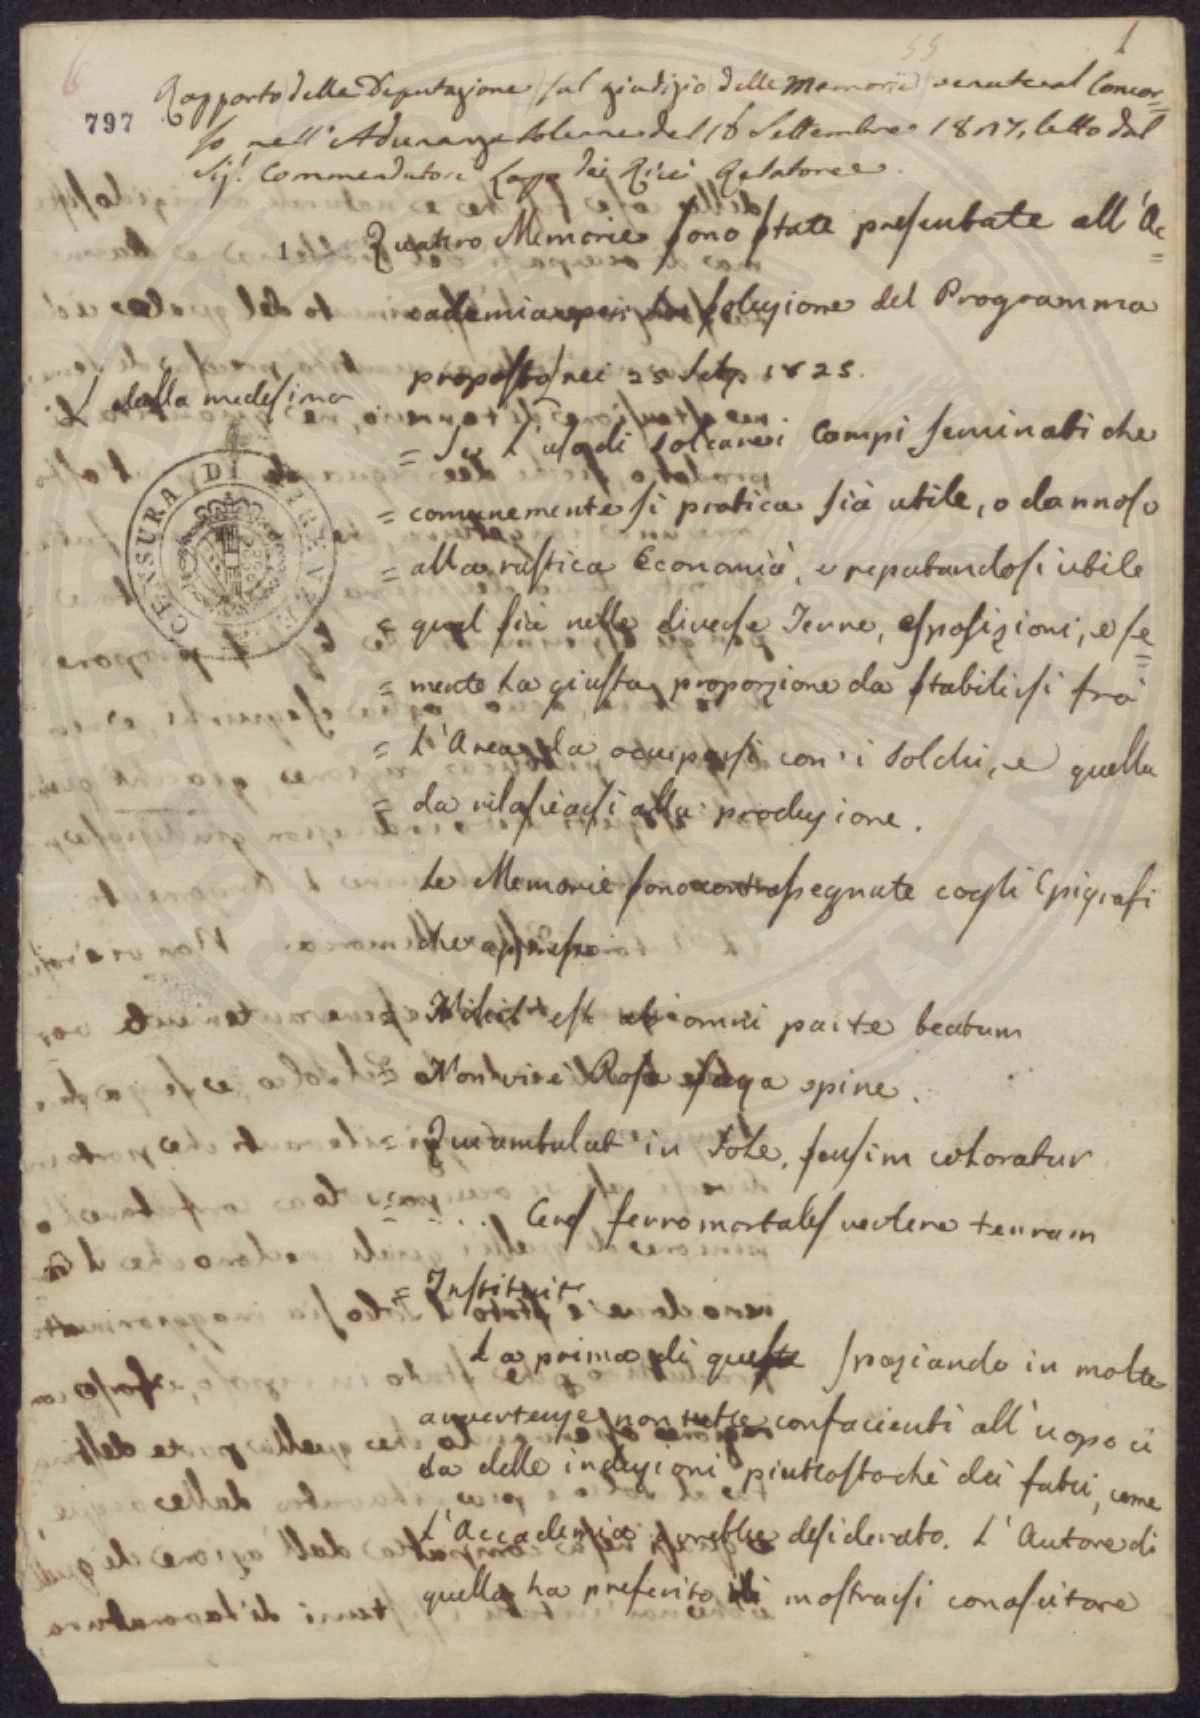 1
55
6
797
Rapporto della Deputazione sul giudizio delle Memorie venute al Concor=
so nell'Adunanza solenne del 16 Settembre 1827, letto dal
Sig.r Commendatore Lapo dei Ricci Relatore.
1
Quattro Memorie sono state presentate all'Ac=
cademia per la soluzione del Programma
proposto nei 25 Sett. 1825.
dalla medesima
= Se l'uso di solcare i Campi seminati che
= comunemente si pratica sia utile, o dannoso
= alla rustica Economia, e reputandosi utile
= qual sia nelle diverse Terre, esposizioni, e se=
= mente la giusta proporzione da stabilirsi frà
= l'Area da occuparsi con i solchi, e quella
= da rilasciarsi alla produzione.
Le Memorie sono contrassegnate cogli Epigrafi
che appresso
= Nihil est ab omni parte beatum
= Non vi è Rosa senza spine.
= Qui ambulat in sole, sensim coloratur
= = . . . Ceres ferro mortales vertere terram
= Instituit
La prima di queste spaziando in molte
avvertenze non tutte confacienti all'uopo ci
da delle induzioni piuttostochè dei fatti, come
l'Accademia avrebbe desiderato. L'Autore di
quella ha preferito di mostrarsi conoscitore
CENSURA DI FIRENZE